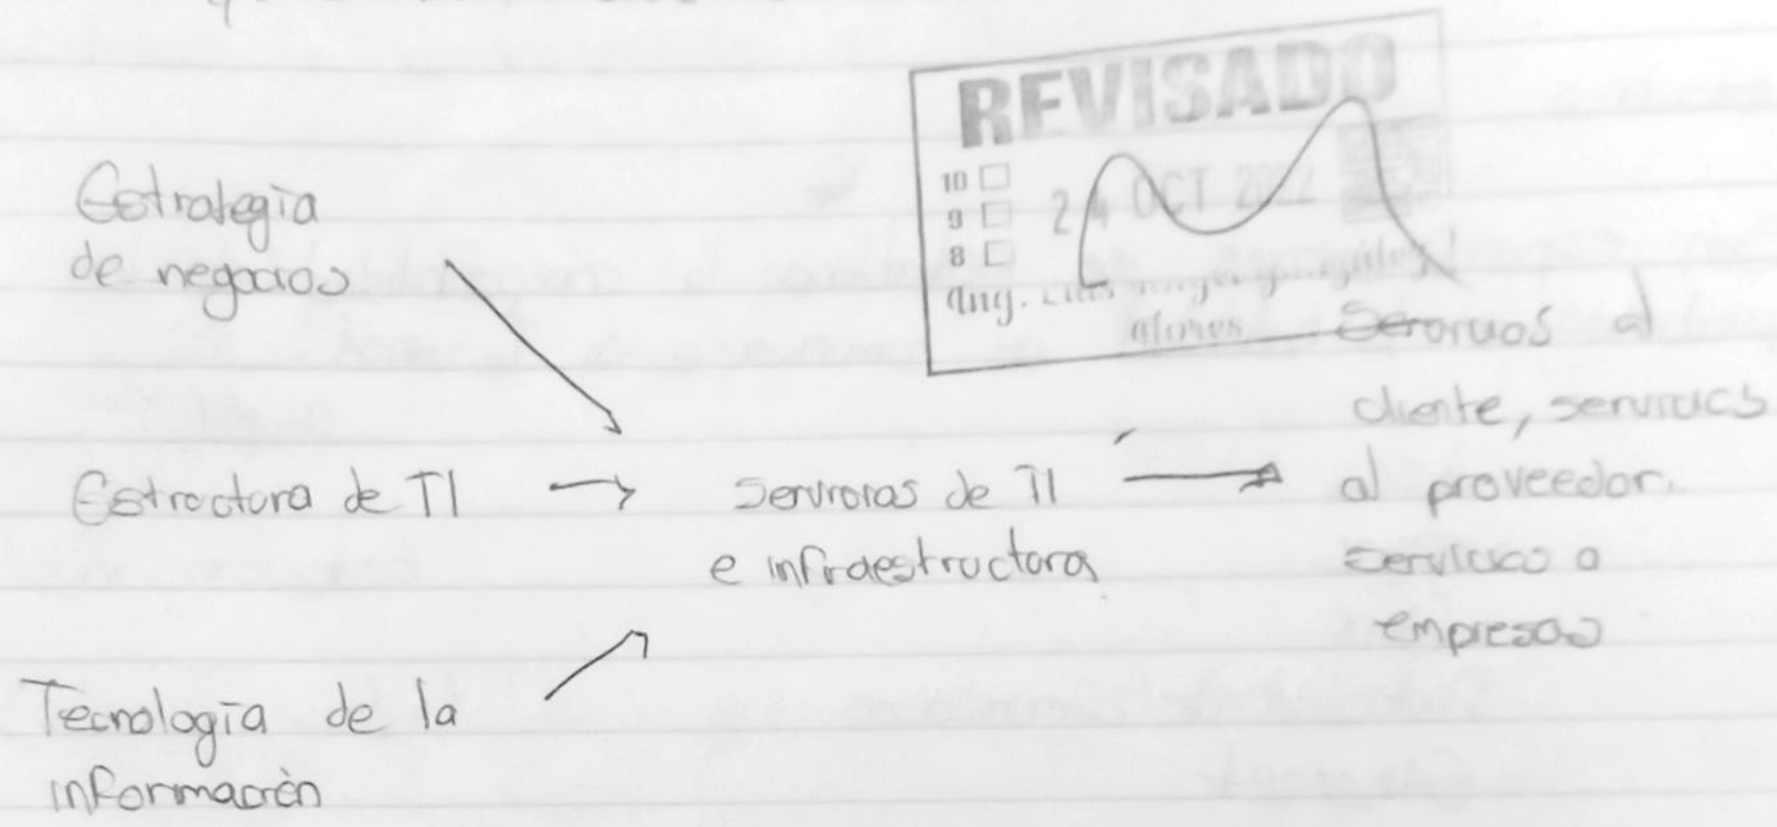 REVISADO
10
9
8
24 OCT 2022
Ing.
Estrategia
de negocios
Estructura de TI
Tecnología de la
información
Servicios de TI
e infraestructura
Servicios al
cliente, servicios
al proveedor.
servicios a
empresas